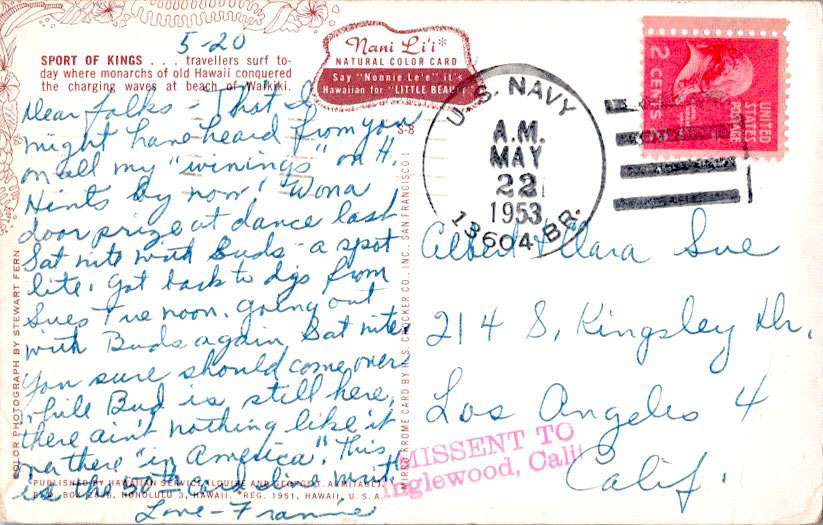 5-20
SPORT OF KINGS . . . travellers surf to-
day where monarchs of old Hawaii conquered
the charging waves at beach of Waikiki.
Nani Li'i*
NATURAL COLOR CARD
Say "Nonnie Le'e" it's
Hawaiian for "LITTLE BEAUTY"
Dear folks - That I
might have heard from you
on all my "winings" on H.
Hints by now! Wona
door prize at dance last
Sat nite with Buds - a spot
lite. Got back to digs from
Sues Tue noon. going out
with Buds again Sat nite
You sure should come over
while Bud is still here,
there ain't nothing like it
over there "in America". This
is the 50th card I've writ
Love - Frannie
S-8
COLOR PHOTOGRAPH BY STEWART FERN
MIRRO-KROME CARD BY H.S. CROCKER CO., INC., SAN FRANCISCO 1
PUBLISHED BY HAWAIIAN SERVICE
BOX HONOLULU 3, HAWAII. *REG. 1951, HAWAII, U.S.A.
U.S. NAVY
A.M.
MAY
22
1953
13604 BR.
UNITED STATES
POSTAGE
2 CENTS
Albert & Clara Sue
214 S. Kingsley Dr.
Los Angeles 4
Calif.
MISSENT TO
Inglewood, Calif